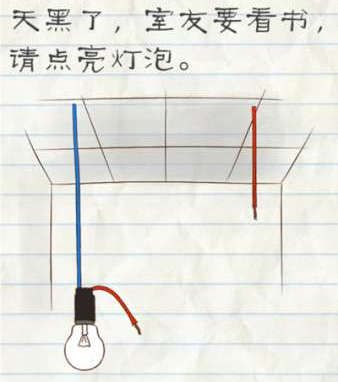 天黑了，室友要看书，
请点亮灯泡。